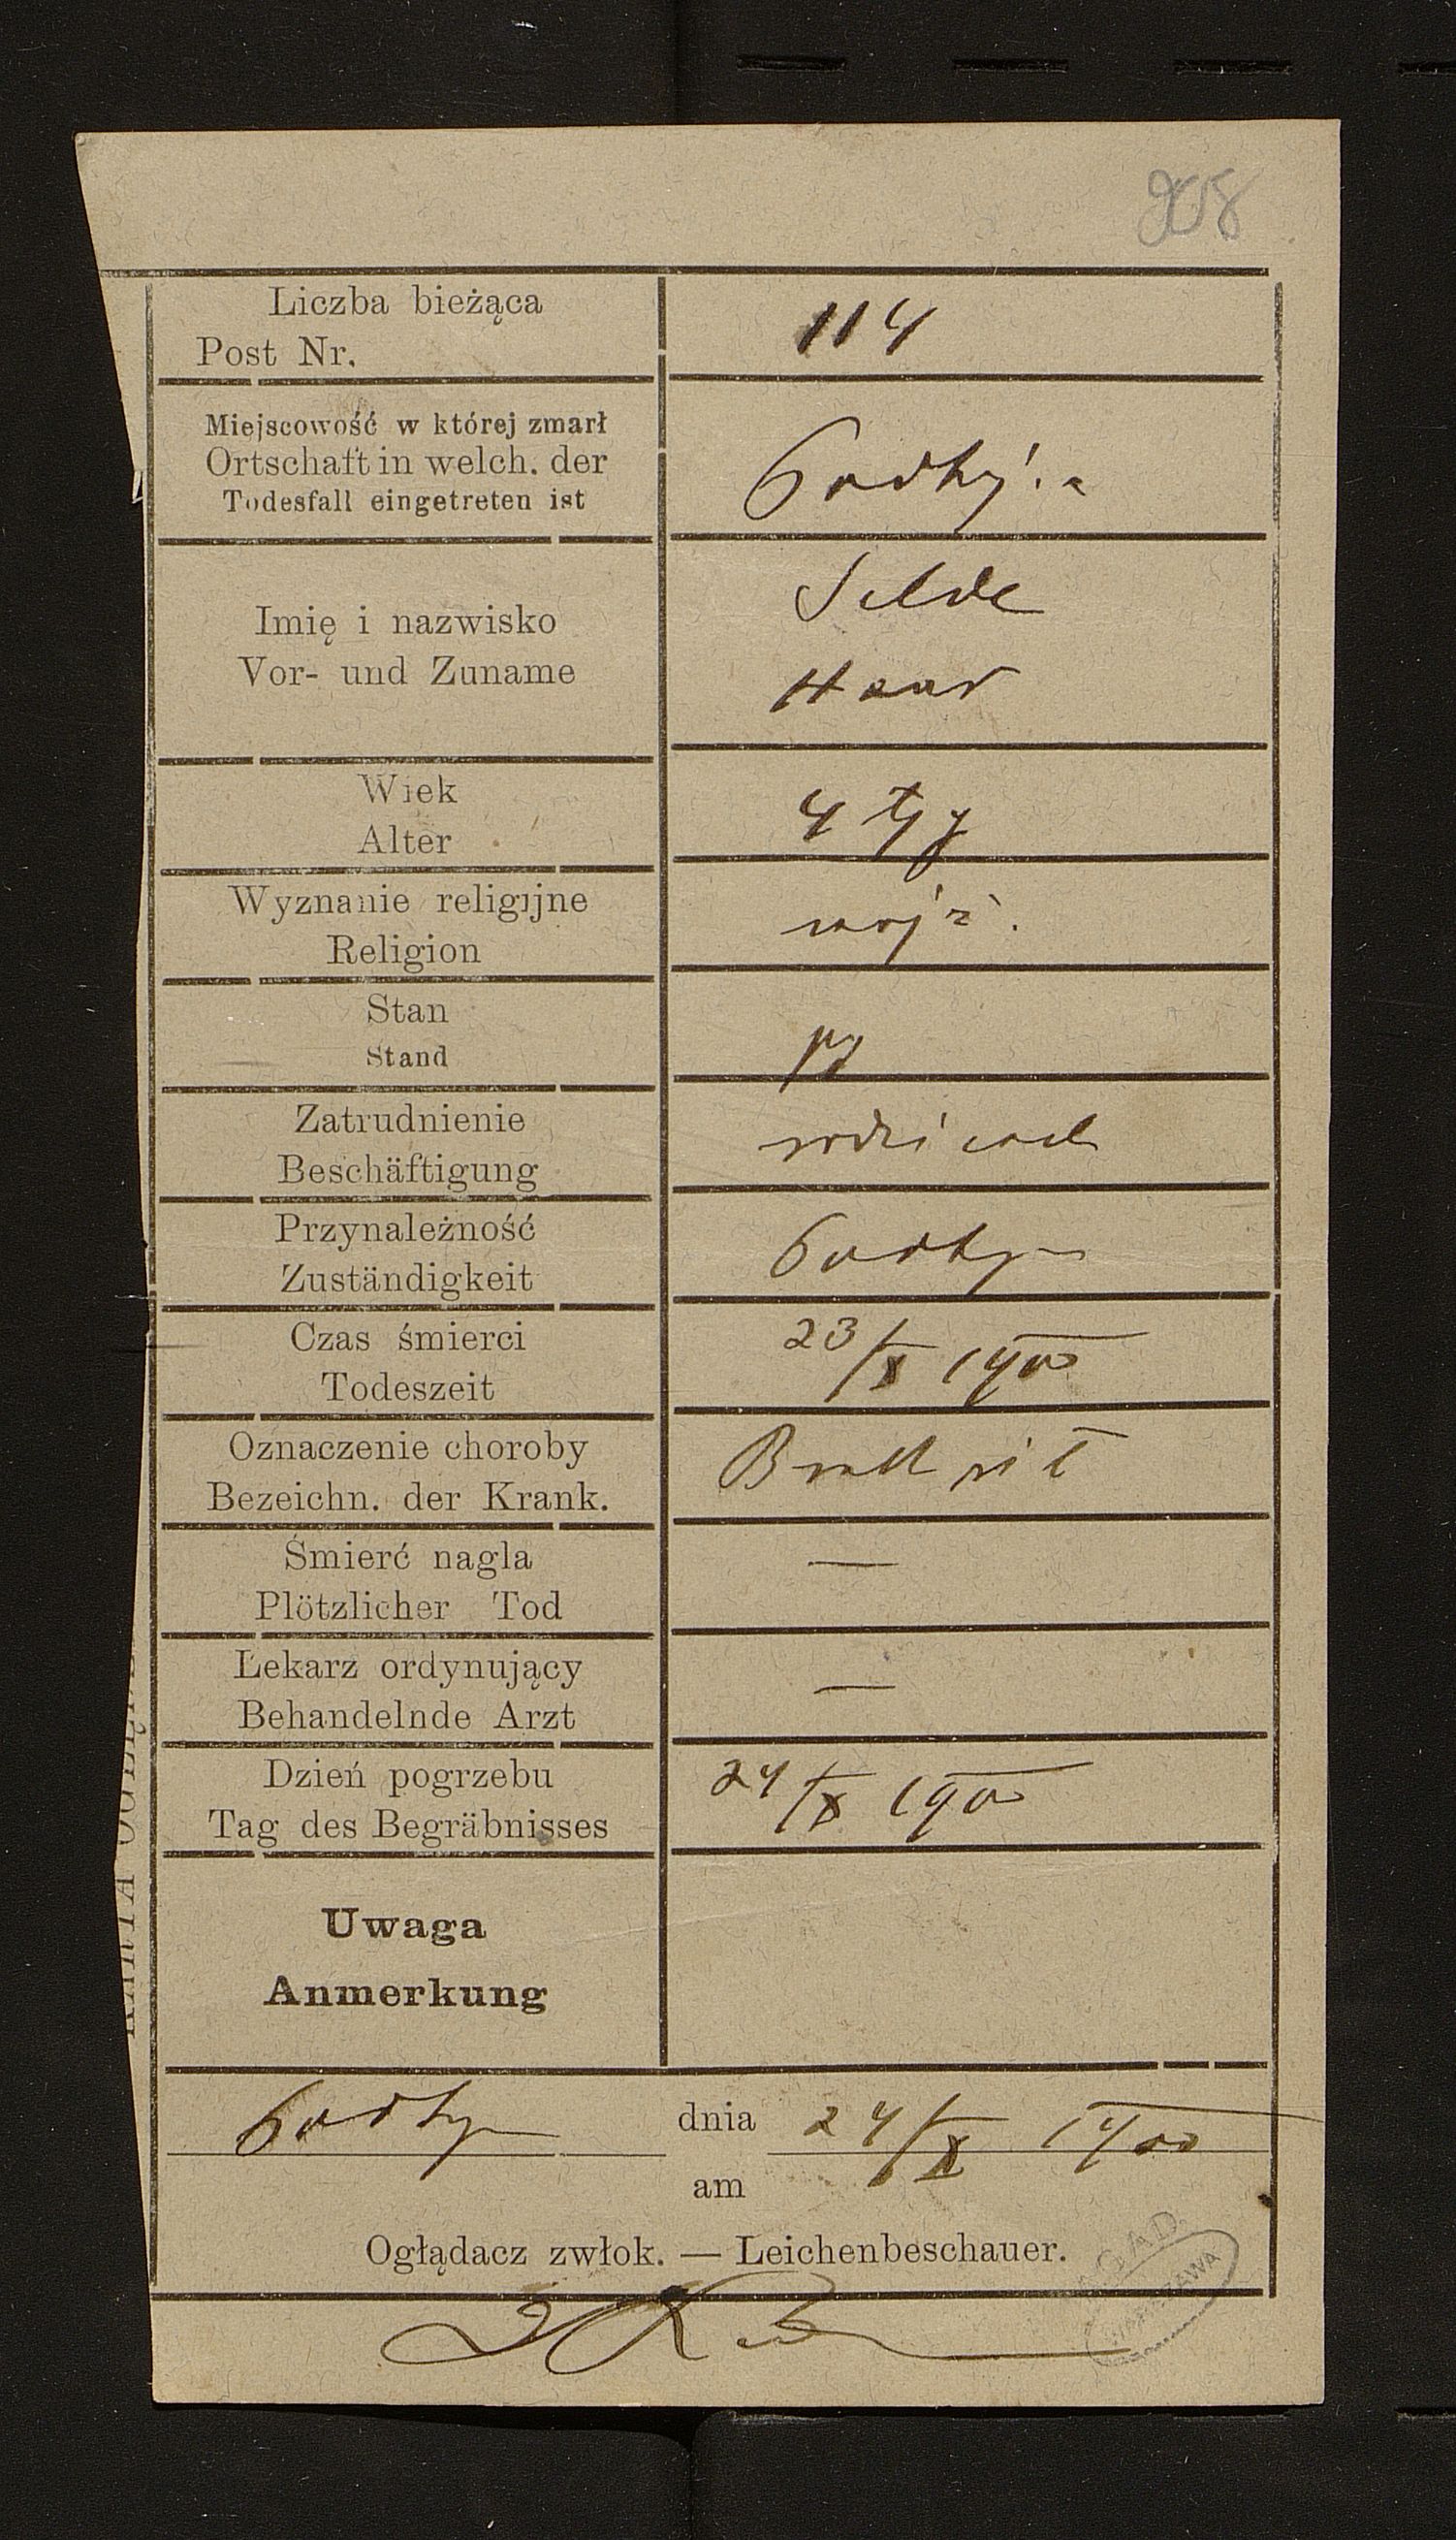 Liczba bieżąca
Post Nr.
114
Miejscowość w której zmarł
Ortschaft in welch. der
Todesfall eingetreten ist
Imię i nazwisko
Vor- und Zuname
Haar
Wiek
Alter
4 tyg
Wyznanie religijne
Religion
mojż.
Stan
Stand
Zatrudnienie
Beschäftigung
Przynależność
Zuständigkeit
Czas śmierci
Todeszeit
23/X 1900
Oznaczenie choroby
Bezeichn. der Krank.
Śmierć nagla
Plötzlicher Tod
—
Lekarz ordynujący
Behandelnde Arzt
—
Dzień pogrzebu
Tag des Begräbnisses
24/X 1900
Uwaga
Anmerkung
dnia 24/X 1900
am
Oglądacz zwłok. — Leichenbeschauer.
AGAD
WARSZAWA